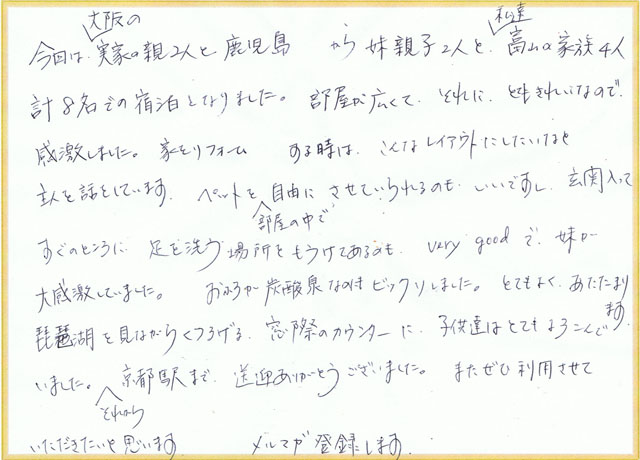 今回は、大阪の実家の親2人と鹿児島から妹親子2人と、私達高山の家族4人
計8名での宿泊となりました。部屋が広くて、それに、ときれいなので、
感激しました。家をリフォームする時は、こんなレイアウトにしたいなと
主人と話をしています。ペットを部屋の中で自由にさせていられるのも、いいですし、玄関入って
すぐのところに足を洗う場所をもうけてあるのも、very goodで、妹が
大感激していました。おふろが炭酸泉なのはビックリしました。とてもよく、あたたまります。
琵琶湖を見ながらくつろげる、窓際のカウンターに、子供達はとてもよろこんで
いました。それから京都駅まで、送迎ありがとうございました。またぜひ利用させて
いただきたいと思います。メルマガ登録します。